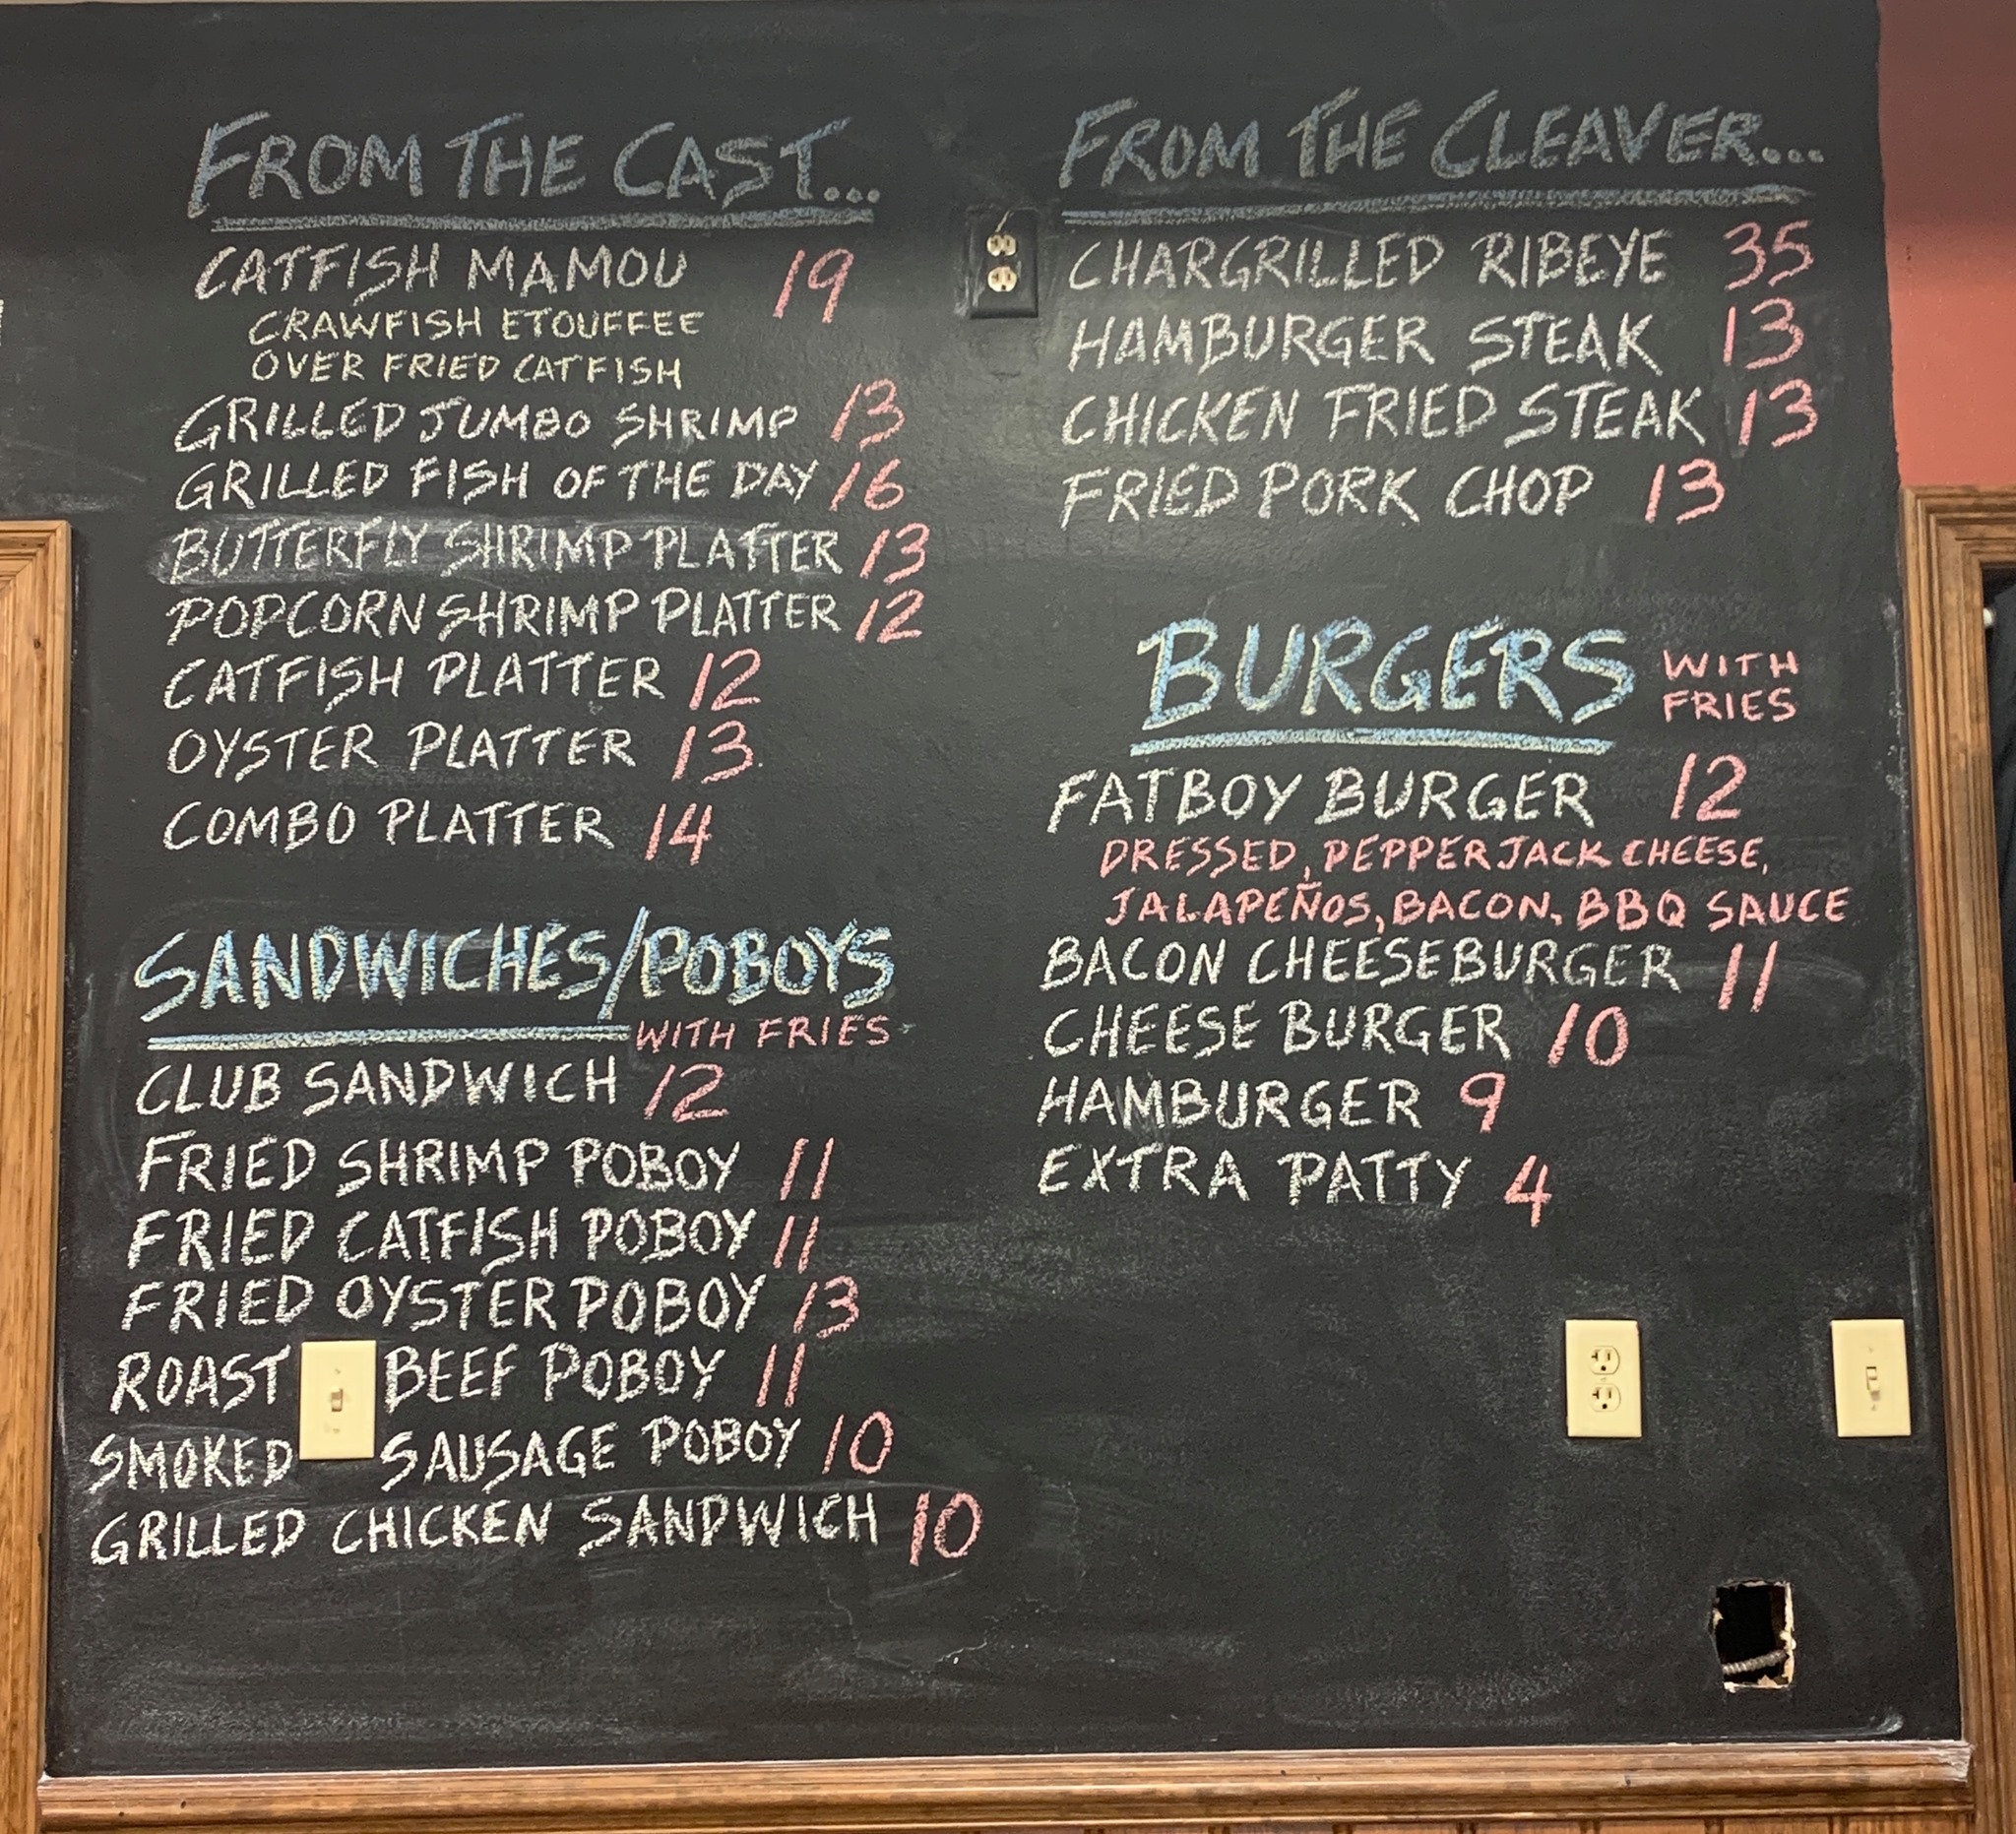 FROM THE CAST...
CATFISH MAMOU 19
CRAWFISH ETOUFFEE
OVER FRIED CATFISH
GRILLED JUMBO SHRIMP 13
GRILLED FISH OF THE DAY 16
BUTTERFLY SHRIMP PLATTER 13
POPCORN SHRIMP PLATTER 12
CATFISH PLATTER 12
OYSTER PLATTER 13
COMBO PLATTER 14
SANDWICHES/POBOYS
WITH FRIES
CLUB SANDWICH 12
FRIED SHRIMP POBOY 11
FRIED CATFISH POBOY 11
FRIED OYSTER POBOY 13
ROAST BEEF POBOY 11
SMOKED SAUSAGE POBOY 10
GRILLED CHICKEN SANDWICH 10
FROM THE CLEAVER...
CHARGRILLED RIBEYE 35
HAMBURGER STEAK 13
CHICKEN FRIED STEAK 13
FRIED PORK CHOP 13
BURGERS WITH
FRIES
FATBOY BURGER 12
DRESSED, PEPPERJACK CHEESE,
JALAPEÑOS, BACON, BBQ SAUCE
BACON CHEESEBURGER 11
CHEESE BURGER 10
HAMBURGER 9
EXTRA PATTY 4